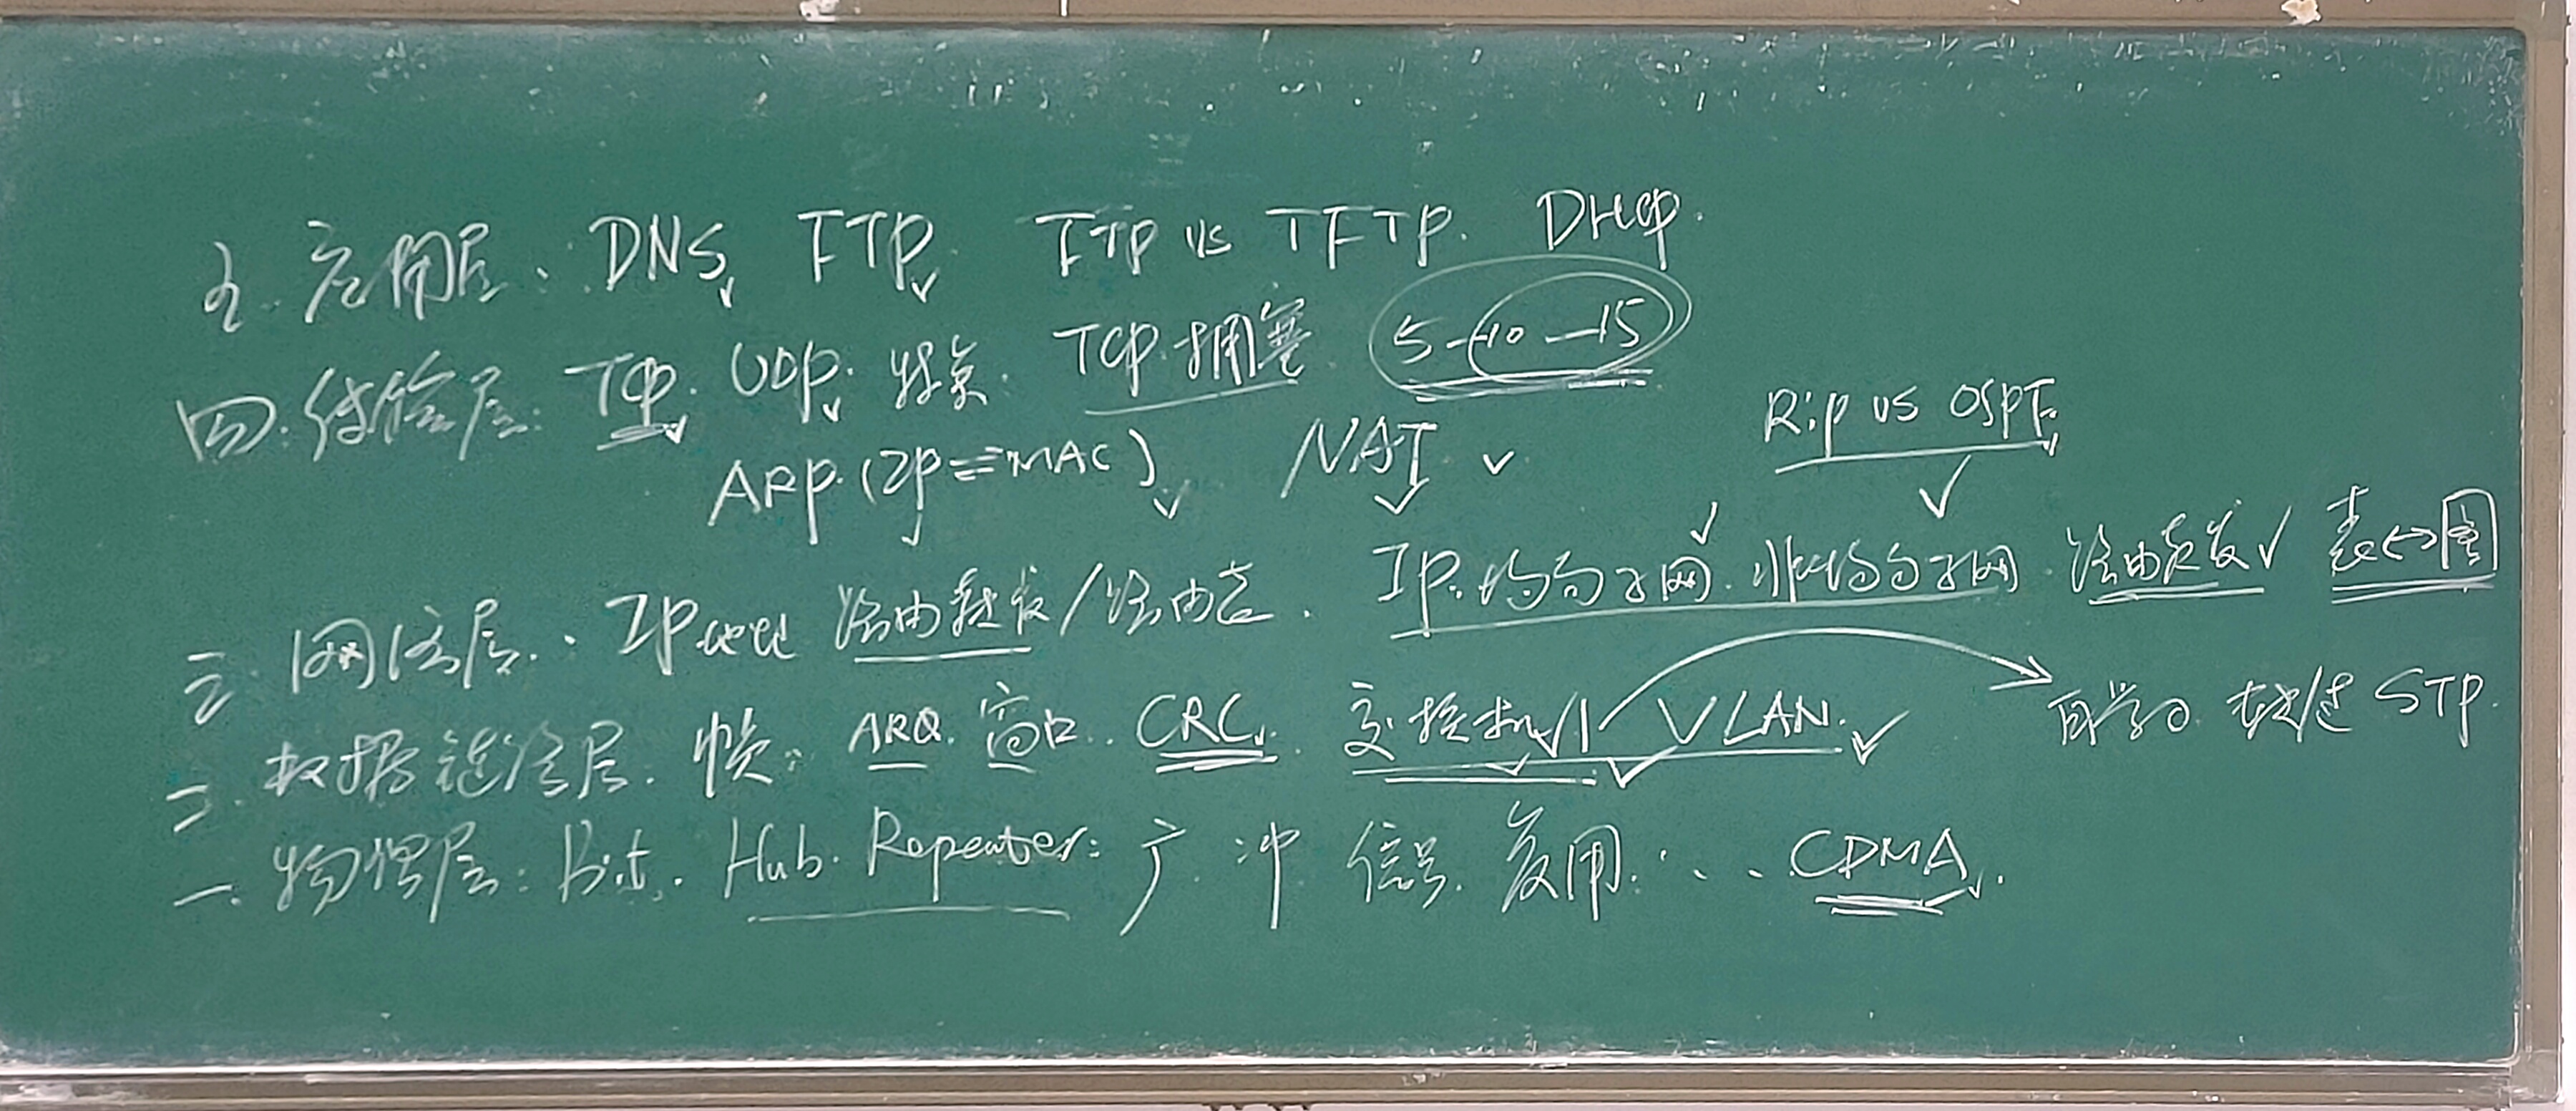 五. 应用层: DNS FTP FTP vs TFTP. DHCP.
四. 传输层: TCP. UDP. 特点. TCP拥塞 5-10-15
ARP.(IP=MAC) NAT Rip vs OSPF.
三. 网络层. IP地址 路由转发/路由表. IP. 均匀子网. 非均匀子网. 路由转发 表↔图
二. 数据链路层. 帧: ARQ. 窗口. CRC. 交换机 VLAN. 自学习 STP.
一. 物理层: bit. Hub. Repeater: 广. 冲 信号. 复用... CDMA.